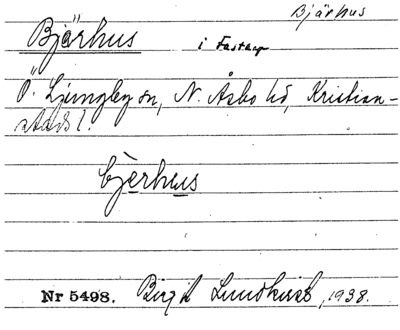 Bjärhus
Bjärhus i Fastarp
Ö. Ljungby sn, N. Åsbo hd, Kristian-
stads l.
bjerhus
Nr 5498. Birgit Lundkvist, 1938.